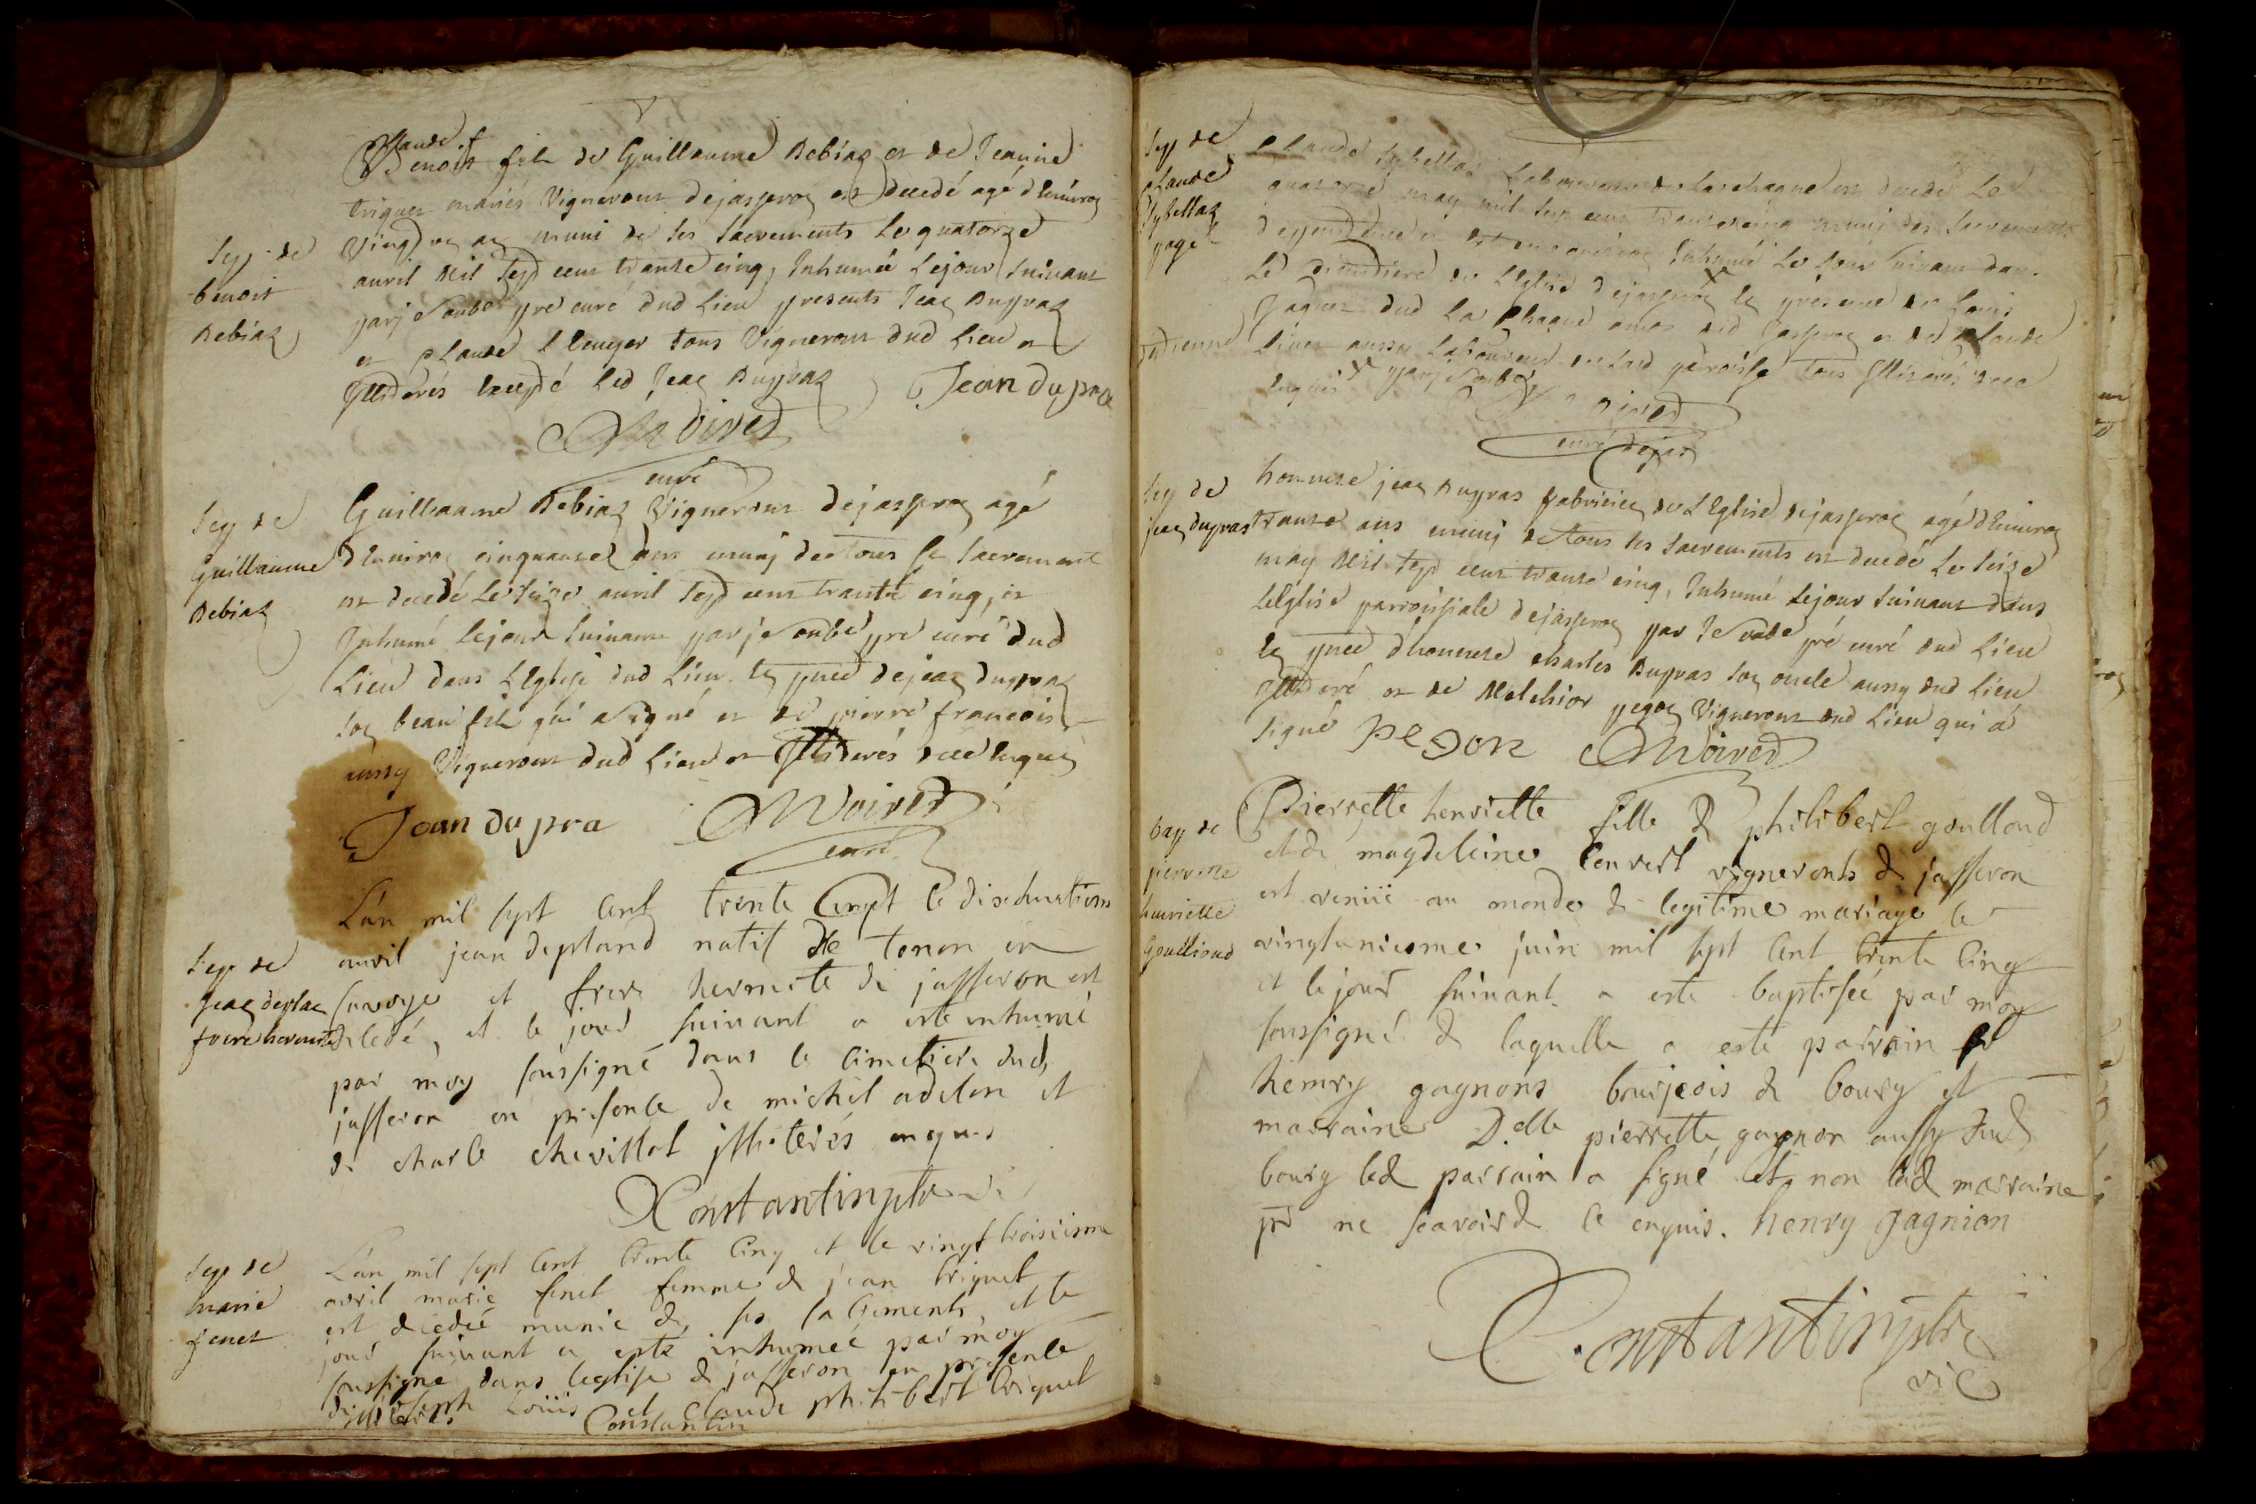 Sep de
benoit
Debiaz
Claude
Benoist fils de Guillaume Debiaz et de Jeanne
triquet mariés Vignerons dejasseron est decedé agé d'Environ
Vingt un an muni de ses sacrements le quatorze
auril Mil sept cent trante cinq, Inhumé Lejour suiuant
par je soubé pre curé dud Lieu presents Jean Dupraz
et Claude tous Vignerons dud Lieu et
Illiterés excepté led Jean Dupraz Jean dupra
Moived
curé
Sep de
Guillaume
Debiaz
Guillaume Debiaz Vigneron dejasseron agé
d'Enuiron cinquante ans munj de tous se sacrement
est decedé Le seize auril sept cent trante cinq, et
Inhumé Lejour suiuant par je soubé pre curé dud
Lieu dans L'Eglise dud Lieu en pnce dejean dupraz
son beau fils qui a signé et de pierre francois
aussy Vigneron dud Lieu et Illiterés de ce enquis
Jean du pra Moived
curé
Sep de
Jean deplan
frere hermite
L'an mil sept cent trente cinq et le dixhuitiem
auril jean depland natif de tonon en
sauoye et frere hermite de jasseron est
decedé, et le jour suiuant a esté inhumé
par moy soussigné dans le cimetiere dud
jasseron en presence de michel adelon et
de charle chevillot illiterés enquis
Constantin ptre vi
Sep de
marie
fenet
L'an mil sept cent trente cinq et le vingt troisieme
avril marie fenet femme de jean triquet
est decedeé munie de ses sacrements et le
jour suiuant a esté inhumeé par moy
soussigne dans leglise de jasseron en presence
de joseph Louis et claude philibert triquet
illiteres Constantin
Sep de
claude
Claude Laboureur de la chagne est decedé Le
quatorze may mil sept cent trante cinq munj des sacrements
Inhumé Le jour suiuant dans
Le Cimetiere de L'Eglise dejasseron en presence de Louis
dud La Chagne
aussy Laboureur de lad paroisse tous Illiterés de ce
enquis par je soubé
Moived
curé dejass
Sep de
jean dupras
honneste jean Dupras fabricien de L'Eglise dejasseron agé d'Enuiron
trante ans munj de tous ses sacrements est decedé Le seize
may Mil sept cent trante cinq, Inhumé Lejour suiuant dans
L'Eglise parroissiale dejasseron par je soubé pré curé dud Lieu
en pnce d'honneste charles Dupras son oncle aussy dud Lieu
Illiteré et de Melchior pegon Vigneron dud Lieu qui a
signé pegon Moived
bap de
pierrette
henriette
Goullioud
Pierrette henriette fille de philibert goulloud
et de magdeleine Convert vignerons de jasseron
est venüe au monde de legitime mariage le
vingtunieme juin mil sept cent trente cinq
et lejour suiuant a esté baptiseé par moy
soussigné de laquelle a esté parrain sr
henry gagnons bourjeois de bourg et
marraine D.elle pierrette gagnon aussy dud
bourg led parrain a signé et non lad marraine
pr ne scavoir de ce enquis. henry gagnion
Constantin ptre
vic